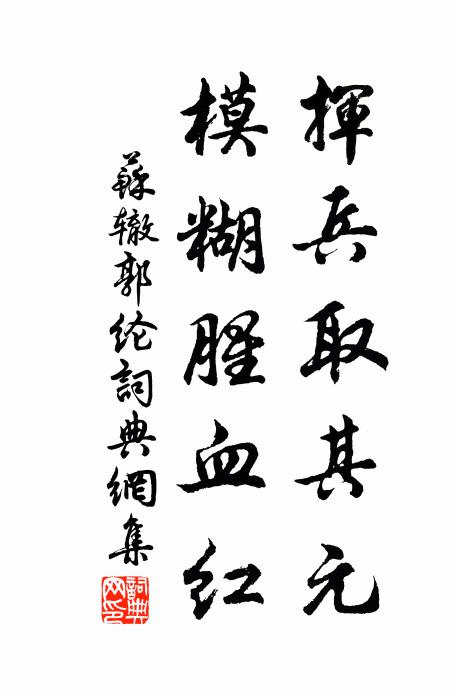 揮兵取其元
模糊腥血红
蘇辙郭纶詞典網集
詞典網印